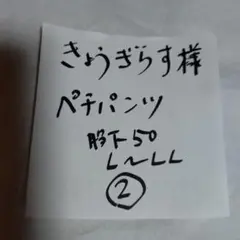 きょうぎらす様
ペチパンツ
股下50
L～LL
②